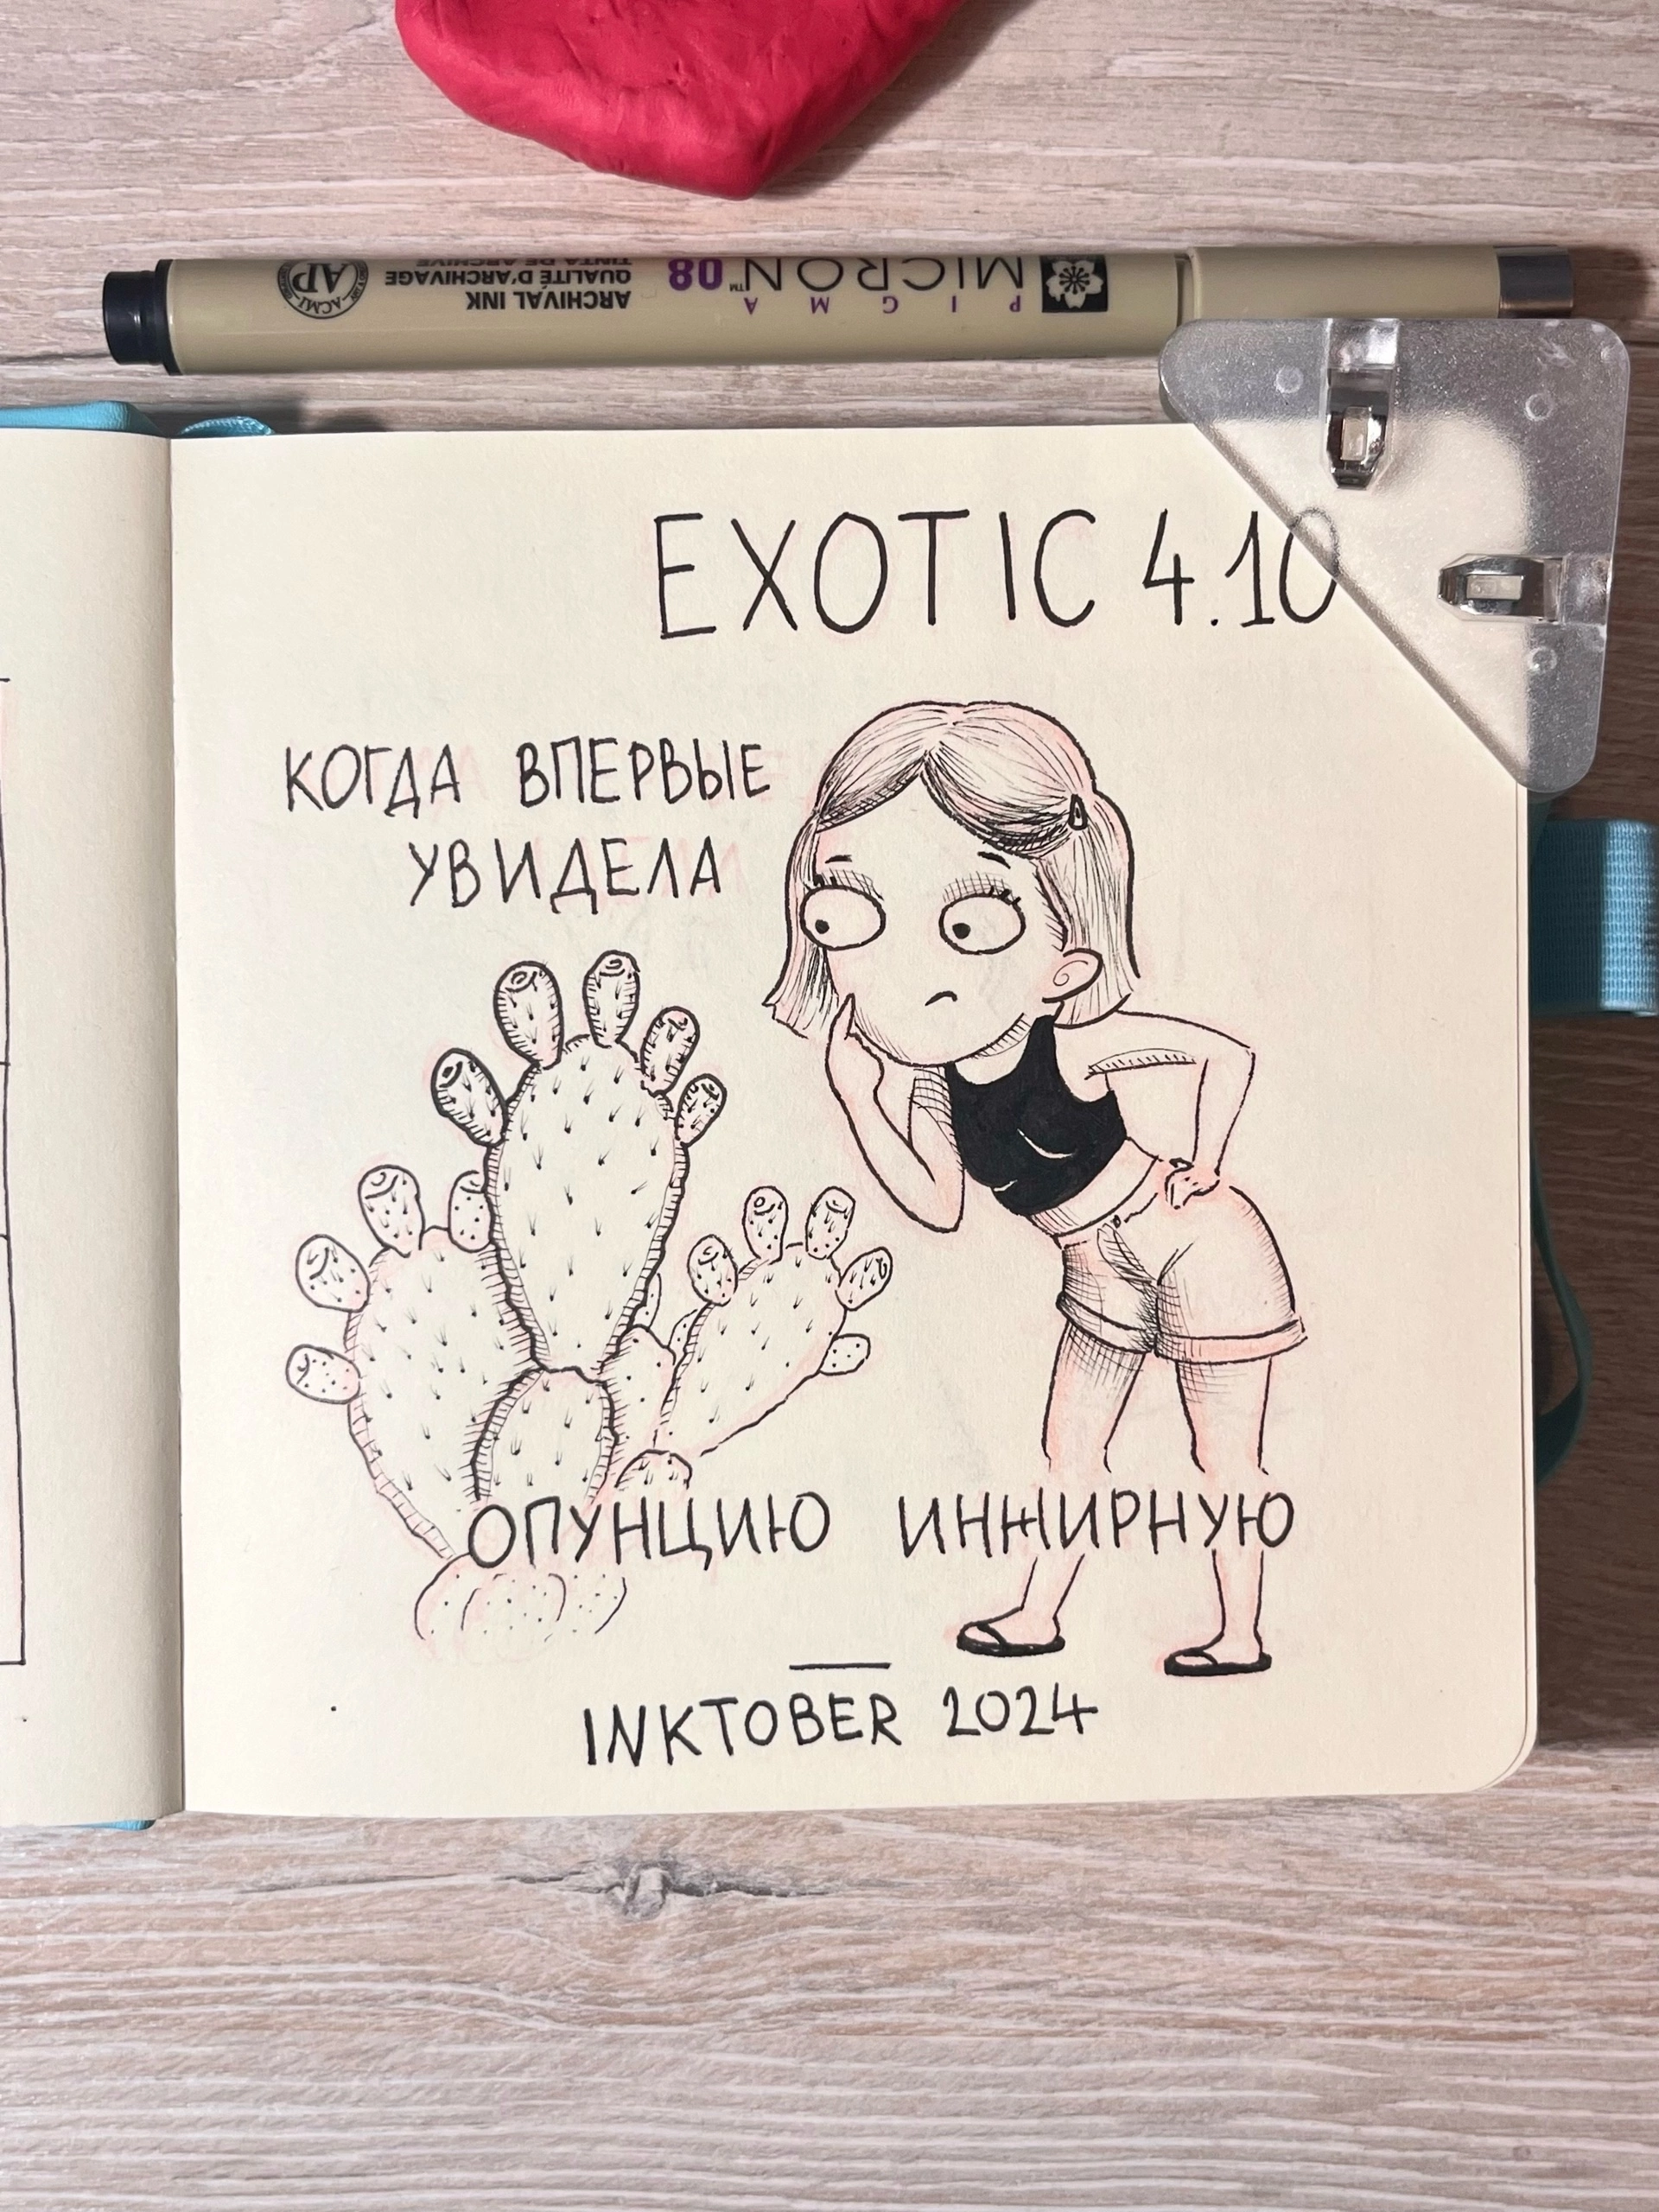 PIGMA
MICRON™ 08
ARCHIVAL INK
QUALITÉ D'ARCHIVAGE
TINTA DE ARCHIVE
ACMI
AP
EXOTIC 4.10
КОГДА ВПЕРВЫЕ
УВИДЕЛА
ОПУНЦИЮ ИНЖИРНУЮ
INKTOBER 2024